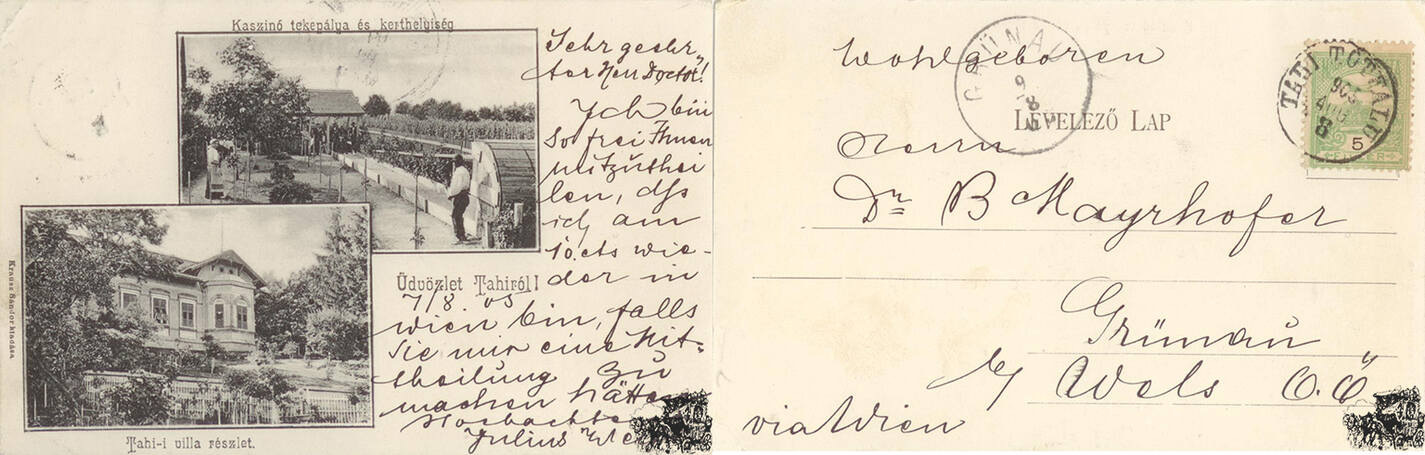 Kaszinó tekepálya és kerthelyiség
Sehr geehr„
ter Herr Doctor!
Ich bin
so frei Ihnen
mitzuthei
len, dss
ich am
10. cts wie-
der in
Üdvözlet Tahiról!
7/8. 05
Wien bin, falls
Sie mir eine Mit-
theilung zu
machen hätten
Hochachtend
Julius
Krausz Sándor kiadása
Tahi-i villa részlet.
Wohlgeboren
GRÜNAU
9
8
LEVELEZŐ LAP
TAHI TÓTFALU
905
AUG
8
5
FILLÉR
Herrn
Dr B Mayrhofer
Grünau
b/ Wels O.Ö
via Wien